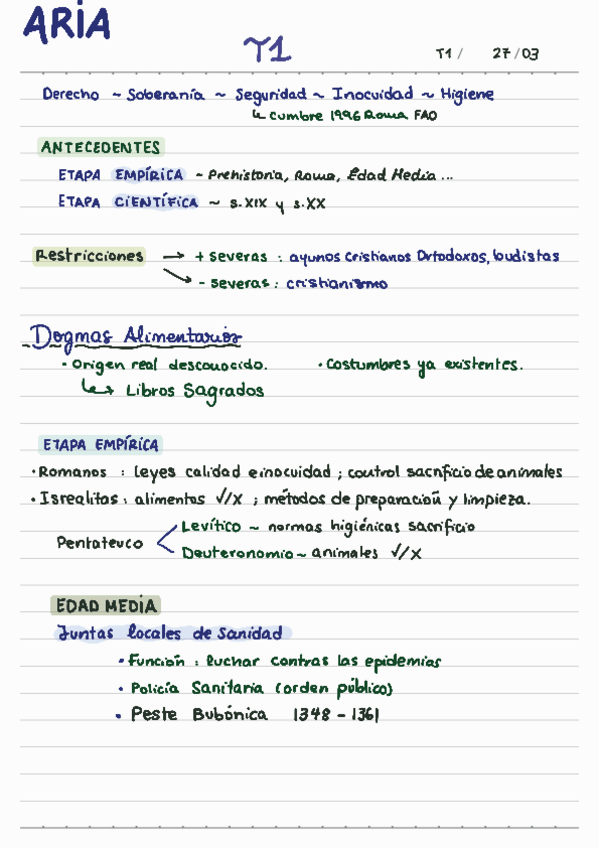 ARIA
T1
T1 / 27/03
Derecho ~ Soberanía ~ Seguridad ~ Inocuidad ~ Higiene
↳ Cumbre 1996 Roma FAO
ANTECEDENTES
ETAPA EMPÍRICA ~ Prehistoria, Roma, Edad Media ...
ETAPA CIENTÍFICA ~ s.XIX y s.XX
Restricciones → + severas : ayunos cristianos Ortodoxos, budistas
- severas : cristianismo
Dogmas Alimentarios
· Origen real desconocido. · Costumbres ya existentes.
↳ Libros Sagrados
ETAPA EMPÍRICA
· Romanos : leyes calidad e inocuidad ; control sacrificio de animales
· Isrealitas : alimentos √/X ; métodos de preparación y limpieza.
Pentateuco < Levítico ~ normas higiénicas sacrificio
Deuteronomio ~ animales √/X
EDAD MEDIA
Juntas locales de Sanidad
· Función : luchar contras las epidemias
· Policía Sanitaria (orden público)
· Peste Bubónica 1348 - 1361